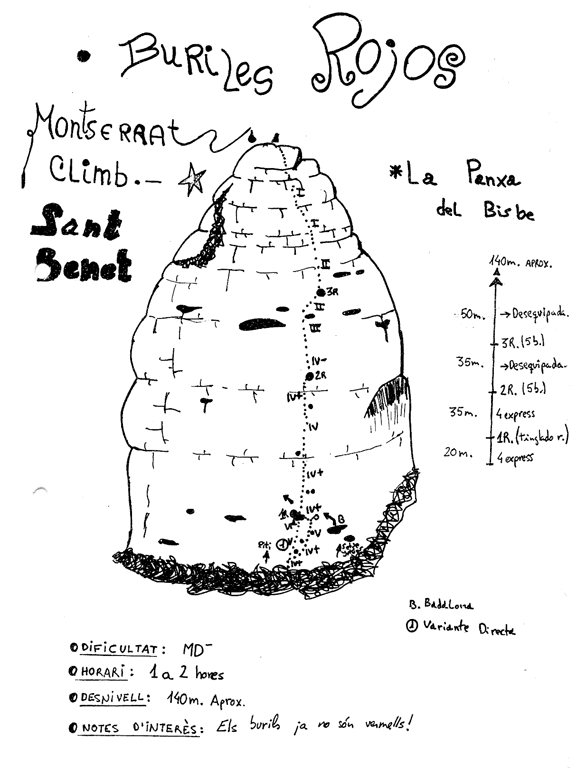 • BURILES ROJOS
MONTSERRAT
CLIMB.-
Sant
Benet
*La Panxa
del Bisbe
140m. APROX.
50m. → Desequipada.
3R. (5b.)
35m. → Desequipada.
2R. (5b.)
35m. 4 express
1R. (tinglado r.)
20m. 4 express
I
I
II
3R
II
III
IV-
2R
IV+
IV
IV+
IV+
1R
V
V
B
Piti
① V
IV+
IV+
B. Badalona
① Variante Directa
DIFICULTAT: MD-
HORARI: 1 a 2 hores
DESNIVELL: 140m. Aprox.
NOTES D'INTERÈS: Els burils ja no són vermells!